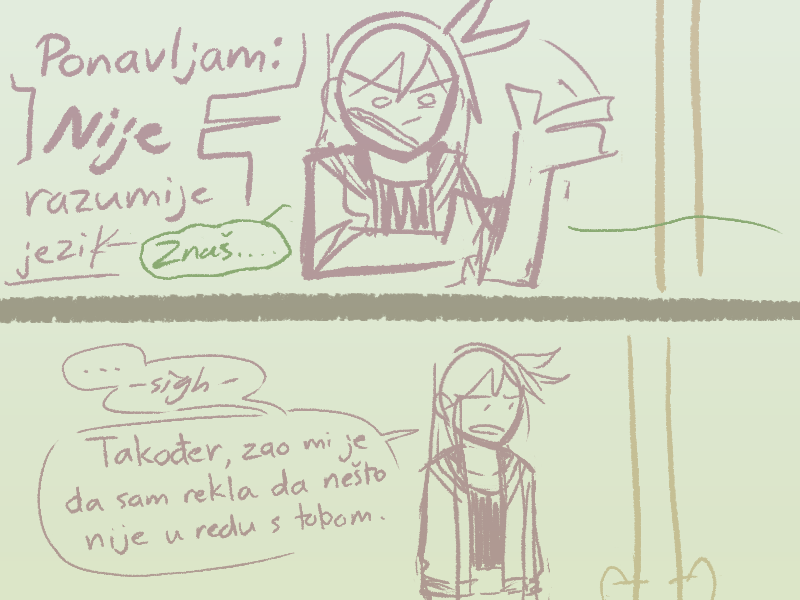 Ponavljam:
Nije
razumije
jezik—
Znaš....
...
-sigh-
Također, zao mi je
da sam rekla da nešto
nije u redu s tobom.